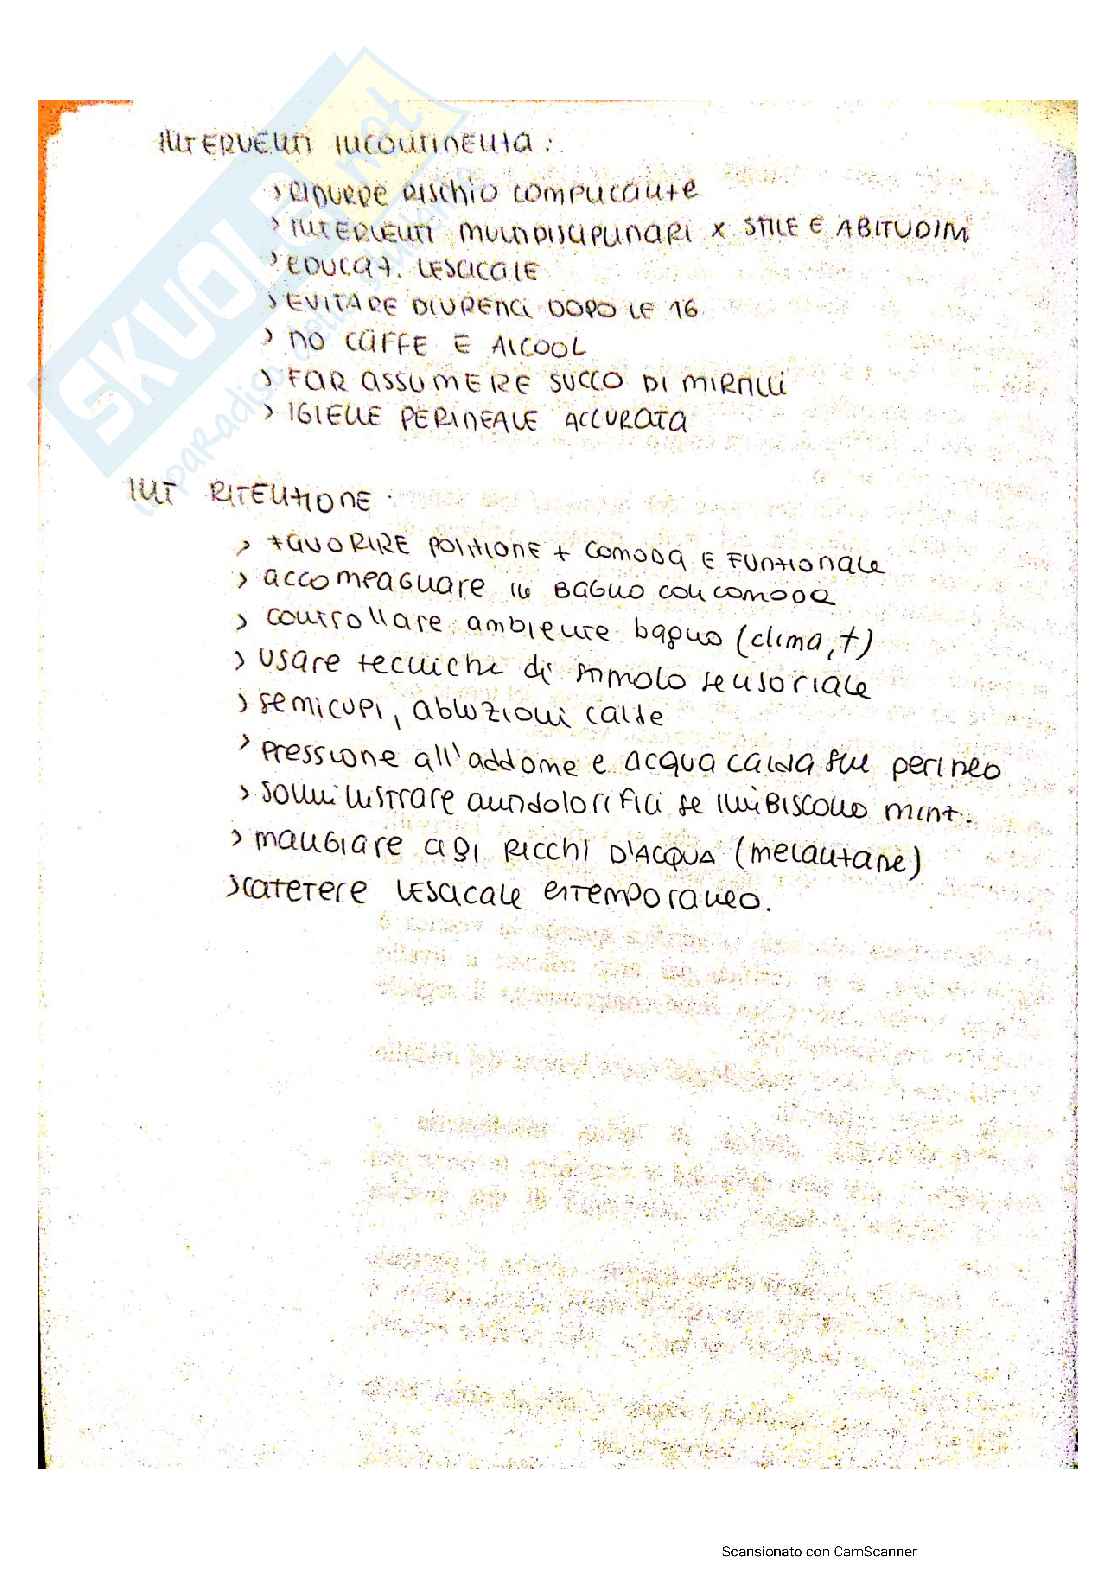 INTERVENTI INCONTINENZA:
> RIDURRE RISCHIO COMPLICANZE
> INTERVENTI MULTIDISCIPLINARI X STILE E ABITUDINI
> EDUCAZ. VESCICALE
> EVITARE DIURETICI DOPO LE 16
> NO CAFFE E ALCOOL
> FAR ASSUMERE SUCCO DI MIRTILLI
> IGIENE PERINEALE ACCURATA
INT RITENZIONE:
> FAVORIRE POSIZIONE + COMODA E FUNZIONALE
> accompagnare in BAGNO con comoda
> controllare ambiente bagno (clima, t)
> usare tecniche di stimolo sensoriale
> semicupi, abluzioni calde
> pressione all'addome e acqua calda sul perineo
> somministrare antidolorifici se inibiscono mint.
> mangiare cibi RICCHI D'ACQUA (melanzane)
> CATETERE VESCICALE ESTEMPORANEO.
SKUOLA.net
Scansionato con CamScanner